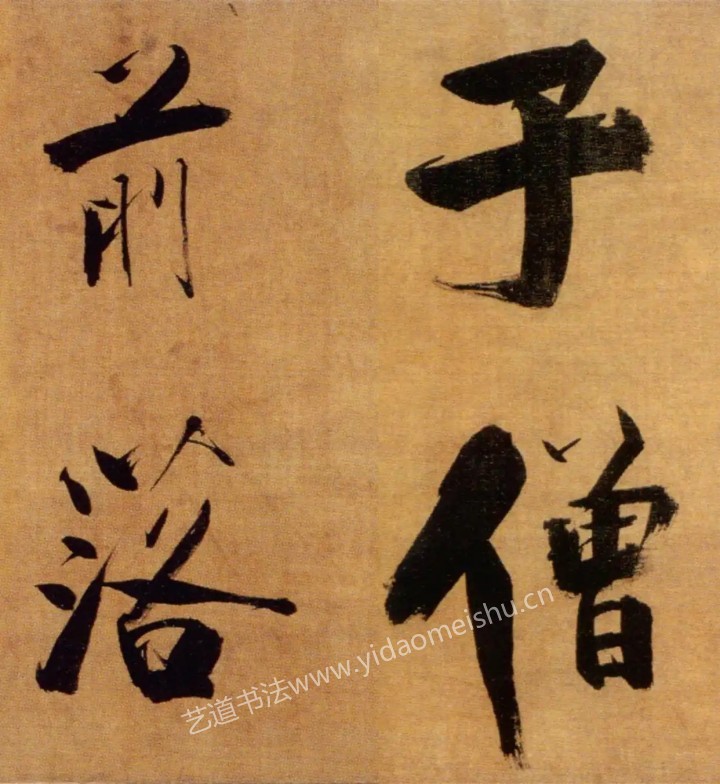 子僧
前落
艺道书法www.yidaomeishu.cn